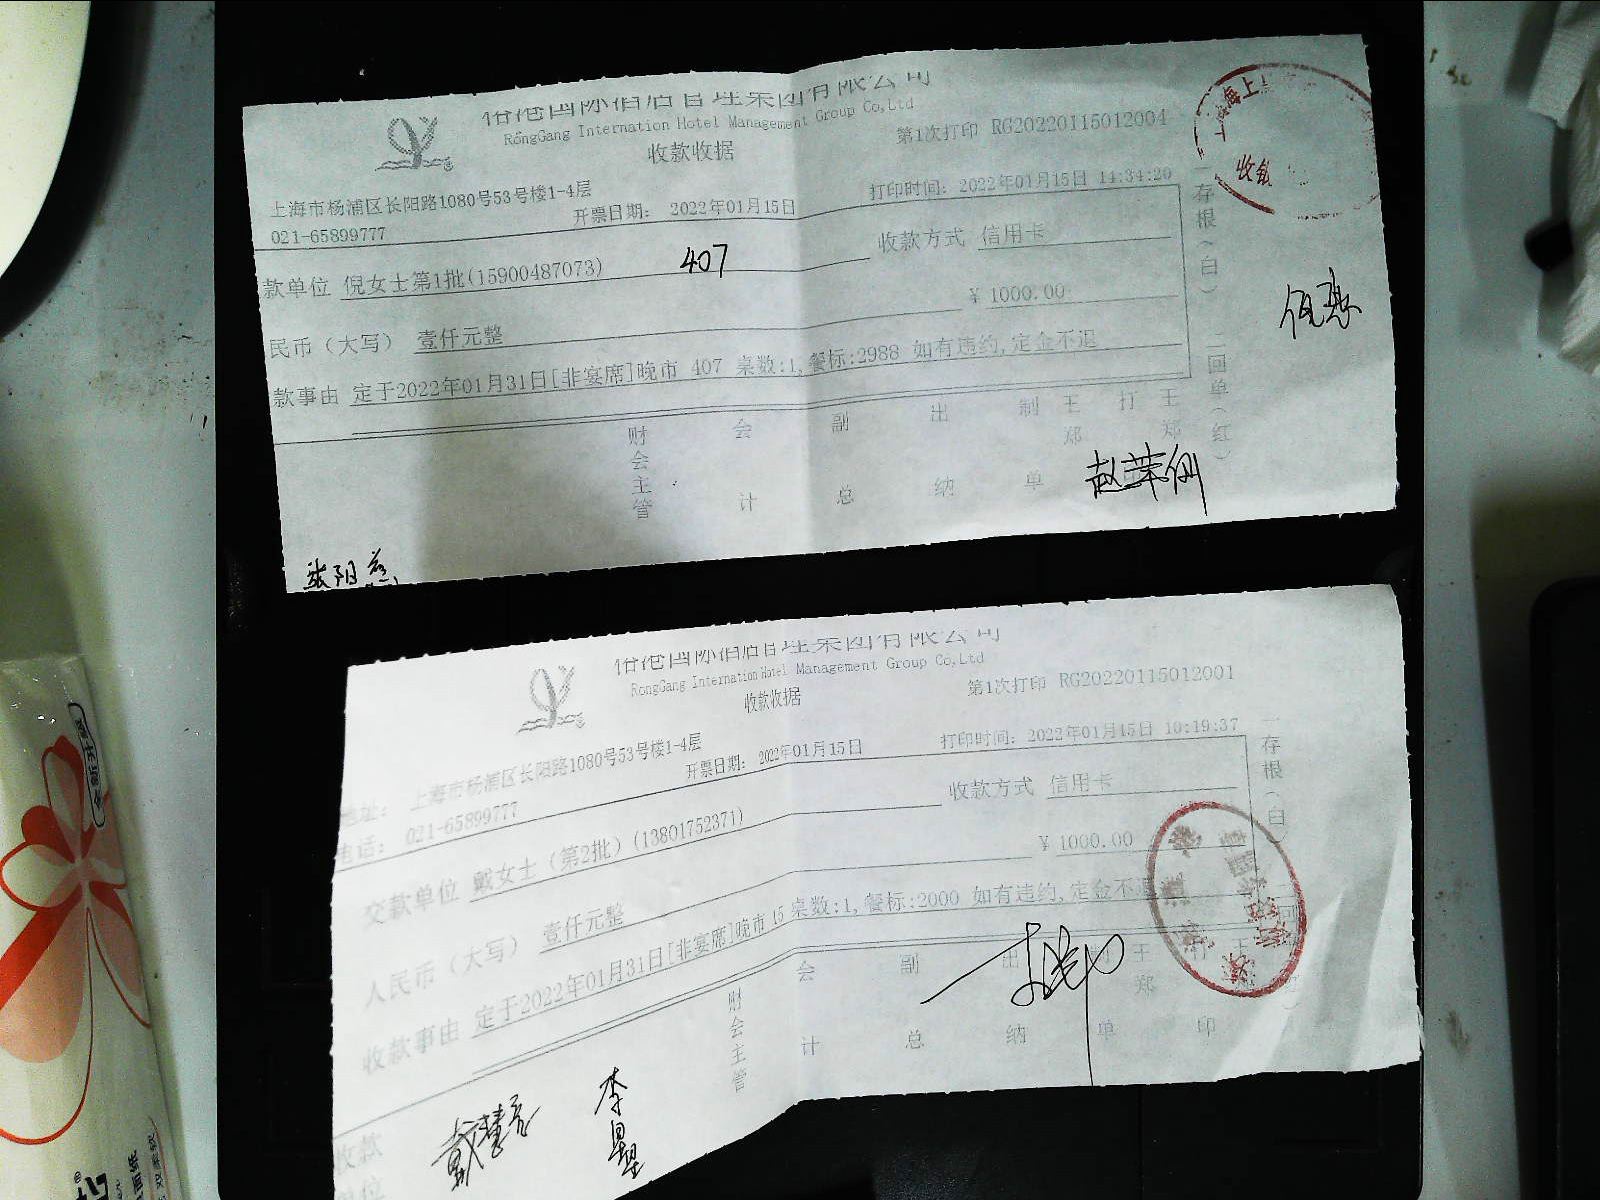 国际酒店管理集团有限公司
RongGang Internation Hotel Management Group Co,Ltd
收款收据
第1次打印 RG20220115012004
上海市杨浦区长阳路1080号53号楼1-4层
打印时间: 2022年01月15日 14:34:20
021-65899777
开票日期: 2022年01月15日
款单位 倪女士第1批(15900487073)
407
收款方式 信用卡
民币（大写） 壹仟元整
¥ 1000.00
款事由 定于2022年01月31日[非宴席]晚市 407 桌数:1,餐标:2988 如有违约,定金不退
财会主管 会计 副总 出纳 制单 王郑 打 王郑
一存根(白) 二回单(红)
上海
收银
国际酒店管理集团有限公司
RongGang Internation Hotel Management Group Co,Ltd
收款收据
第1次打印 RG20220115012001
地址: 上海市杨浦区长阳路1080号53号楼1-4层
打印时间: 2022年01月15日 10:19:37
电话: 021-65899777
开票日期: 2022年01月15日
交款单位 戴女士（第2批）(13801752371)
收款方式 信用卡
人民币（大写） 壹仟元整
¥ 1000.00
收款事由 定于2022年01月31日[非宴席]晚市 15 桌数:1,餐标:2000 如有违约,定金不退
财会主管 会计 副总 出纳 单 王郑 打印
一存根(白)
收款
单位